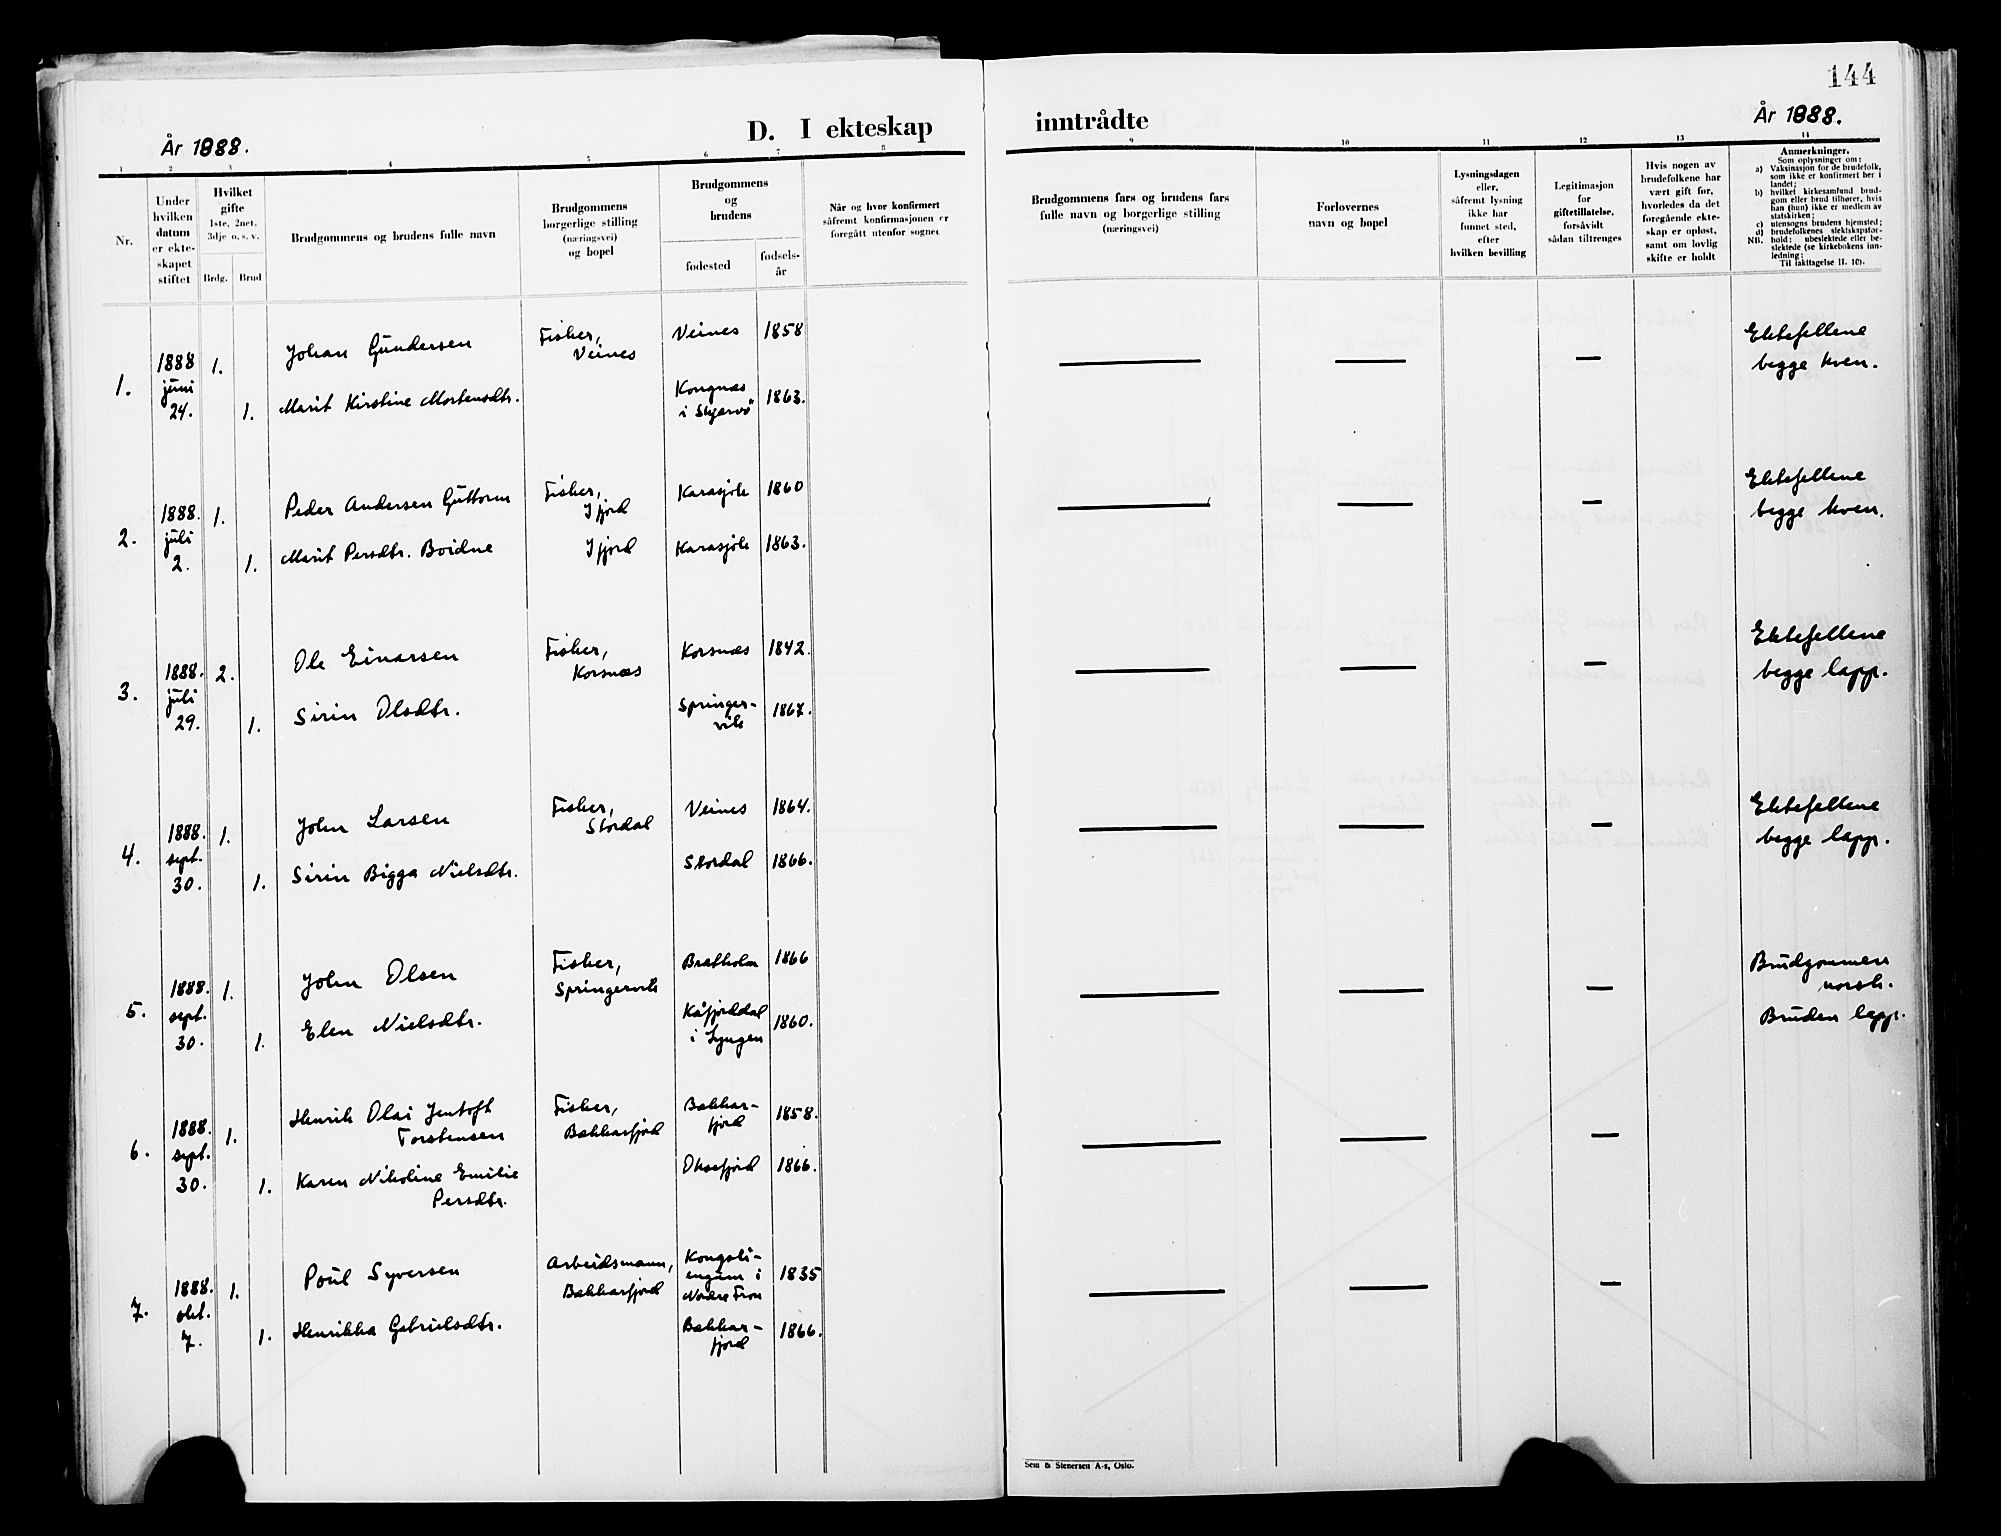 144
År 1888.
D. I ekteskap inntrådte
År 1888.
1 2 3 4 5 6 7 8 9 10 11 12 13 14
Nr.
Under
hvilken
datum
er ekte-
skapet
stiftet
Hvilket
gifte
1ste, 2net,
3dje o. s. v.
Brdg. Brud
Brudgommens og brudens fulle navn
Brudgommens
borgerlige stilling
(næringsvei)
og bopel
Brudgommens
og
brudens
fødested
fødsels-
år
Når og hvor konfirmert
såfremt konfirmasjonen er
foregått utenfor sognet
Brudgommens fars og brudens fars
fulle navn og borgerlige stilling
(næringsvei)
Forlovernes
navn og bopel
Lysningsdagen
eller,
såfremt lysning
ikke har
funnet sted,
efter
hvilken bevilling
Legitimasjon
for
giftetillatelse,
forsåvidt
sådan tiltrenges
Hvis nogen av
brudefolkene har
vært gift før,
hvorledes da det
foregående ekte-
skap er opløst,
samt om lovlig
skifte er holdt
Anmerkninger.
Som oplysninger om:
a) Vaksinasjon for de brudefolk,
som ikke er konfirmert her i
landet;
b) hvilket kirkesamfund brud-
gom eller brud tilhører, hvis
han (hun) ikke er medlem av
statskirken;
c) utensogns brudens hjemsted;
d) brudefolkenes slektskapsfor-
hold: ubeslektede eller be-
slektede (se kirkebokens inn-
ledning;
NB.
Til iakttagelse II. 10).
1. 1888 juni 24. 1. Johan Gundersen Fisker, Veines Veines 1858 — — — Ektefellene
begge kven.
1. Marit Kirstine Mortensdtr. Kongnæs i Skjervö 1863.
2. 1888. juli 2. 1. Peder Andersen Guttorm Fisker, Ifjord Karasjok 1860 — — — Ektefellene
begge kven.
1. Marit Persdtr. Boidne Ifjord Karasjok 1863.
3. 1888. juli 29. 2. Ole Einarsen Fisker, Korsnæs Korsnæs 1842. — — — Ektefellene
begge lapp.
1. Sirin Olsdtr. Springer-
vik 1867.
4. 1888. sept. 30. 1. John Larsen Fisker, Stordal Veines 1864. — — — Ektefellene
begge lapp.
1. Sirin Bigga Nielsdtr. Stordal 1866.
5. 1888. sept. 30. 1. John Olsen Fisker, Springervik Bratholm 1866 — — — Brudgommen
norsk.
1. Elen Nielsdtr. Kåfjorddal
i Lyngen 1860. Bruden lapp.
6. 1888. sept. 30. 1. Henrik Olai Jentoft
Torstensen Fisker, Bekkarfjord Bekkar-
fjord 1858. — — —
1. Karen Nikoline Emilie
Persdtr. Oksefjord 1866.
7. 1888. okt. 7. 1. Poul Syversen Arbeidsmann, Bekkarfjord Kongsli-
engen i
Nordre Fron 1835 — — —
1. Henrikka Gabrielsdtr. Bekkar-
fjord 1866.
Sem & Stenersen A-s, Oslo.